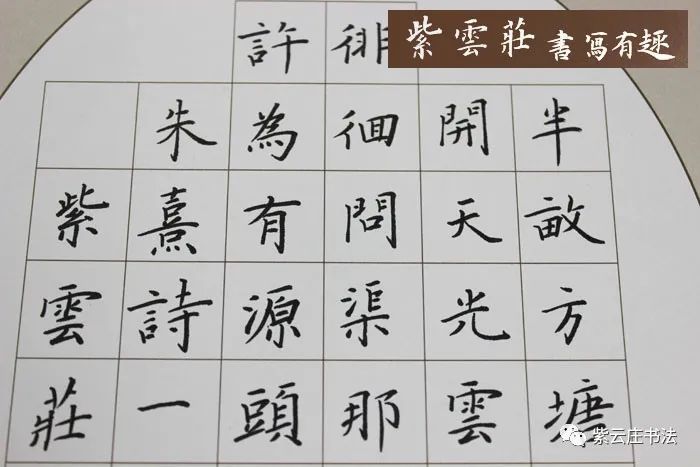 紫雲莊書寫有趣
半畝方塘
開天光雲
徘徊問渠那
許為有源頭
朱熹詩一
紫雲莊
紫云庄书法